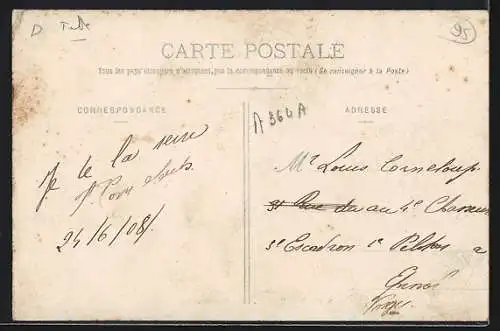 D
95
CARTE POSTALE
Tous les pays étrangers n'acceptent pas la correspondance au recto (Se renseigner à la Poste)
CORRESPONDANCE
ADRESSE
A 364A
Je te la
24/6/08
Mr Louis Corneloup
au 4e Chasseurs
5e Escadron 1e Peloton a
Epinal
Vosges